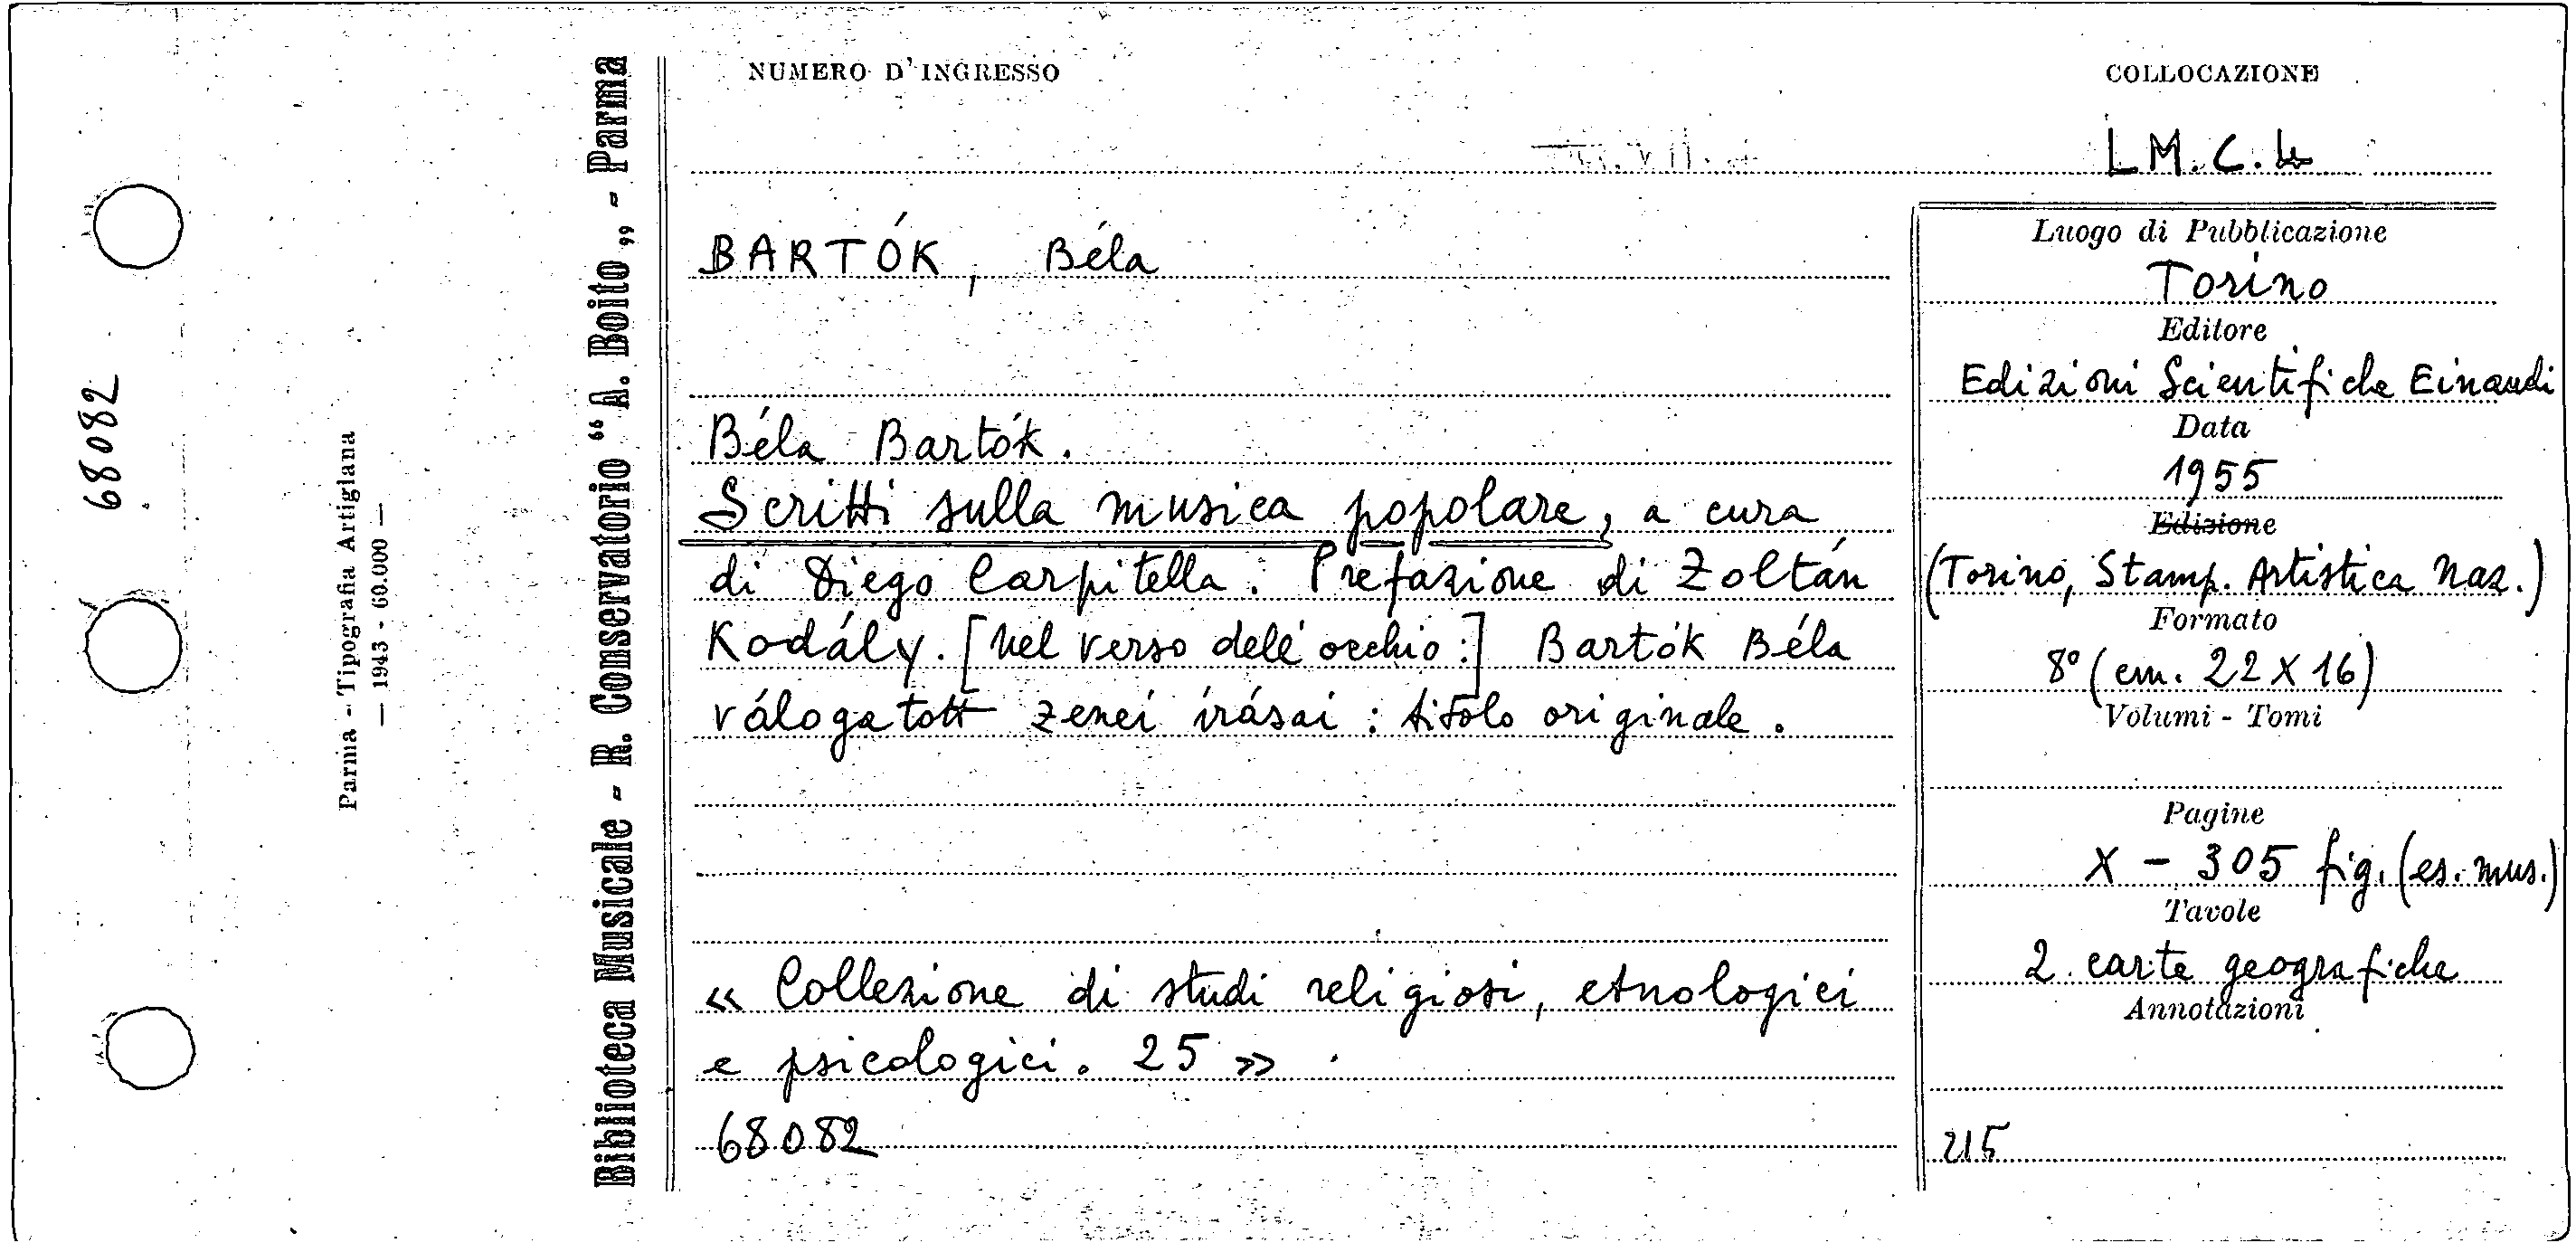 NUMERO D'INGRESSO
COLLOCAZIONE
LM.C.4
68082
Parma - Tipografia Artigiana
— 1943 - 60.000 —
Biblioteca Musicale - R. Conservatorio “A. Boito„ - Parma
BARTÓK, Béla
Béla Bartók.
Scritti sulla musica popolare, a cura
di Diego Carpitella. Prefazione di Zoltán
Kodály. [nel verso dell'occhio:] Bartók Béla
válogatott zenei írásai : titolo originale.
« Collezione di studi religiosi, etnologici
e psicologici. 25 »
68082
Luogo di Pubblicazione
Torino
Editore
Edizioni Scientifiche Einaudi
Data
1955
Edizione
(Torino, Stamp. Artistica Naz.)
Formato
8° (cm. 22 X 16)
Volumi - Tomi
Pagine
X - 305 fig. (es. mus.)
Tavole
2 carte geografiche
Annotazioni
215